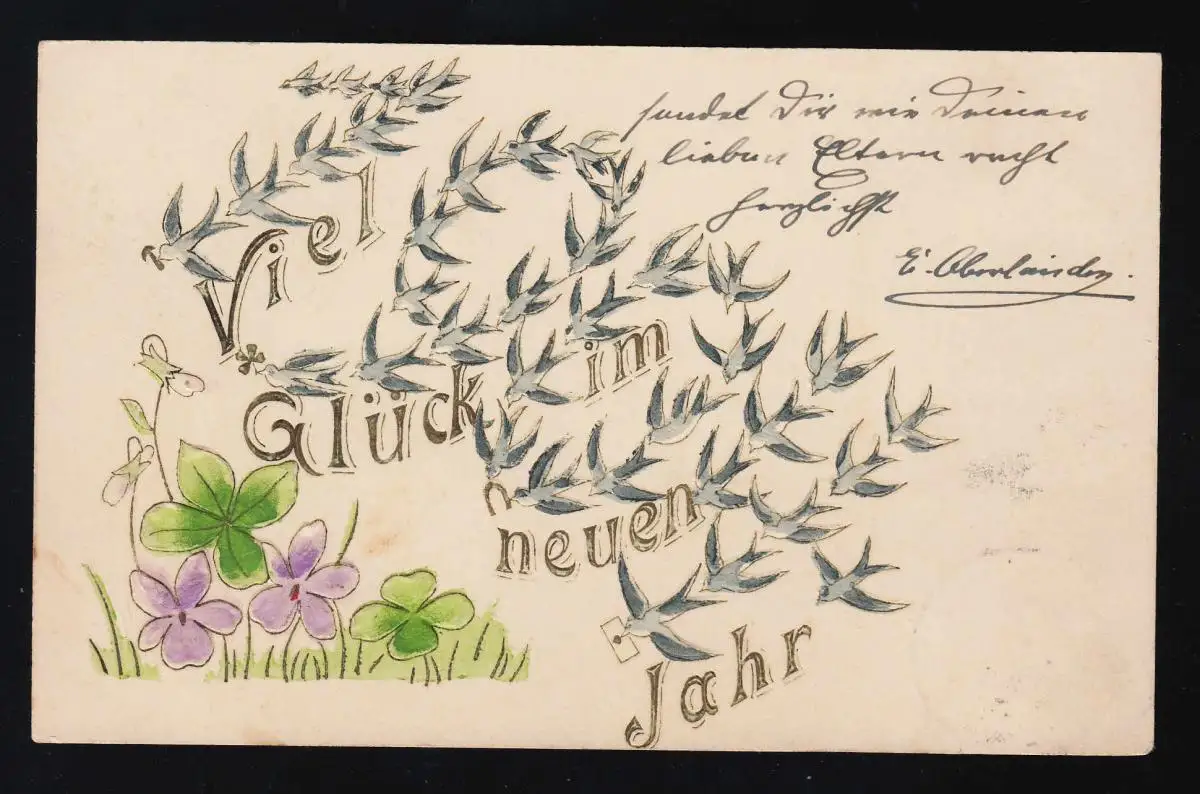 Viel
Glück im
neuen
Jahr
sendet Dir wie Deinen
lieben Eltern recht
herzlichst
E. Oberlander.